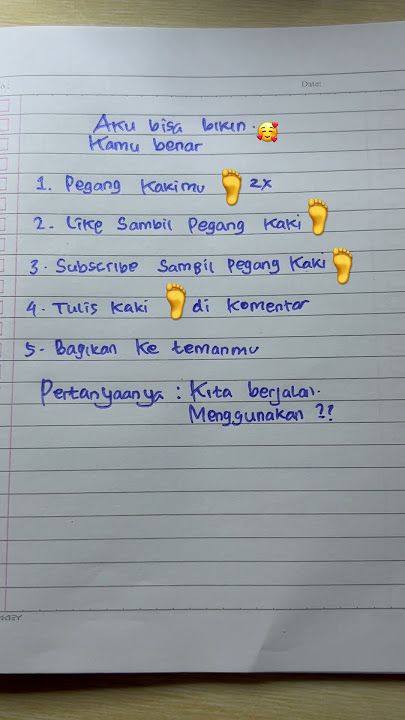 Date:
Aku bisa bikin. 🥰
Kamu benar
1. Pegang Kakimu 🦶 2x
2. Like Sambil Pegang Kaki 🦶
3. Subscribe Sambil Pegang Kaki 🦶
4. Tulis Kaki 🦶 di Komentar
5. Bagikan Ke temanmu
Pertanyaanya : Kita berjalan.
Menggunakan ??